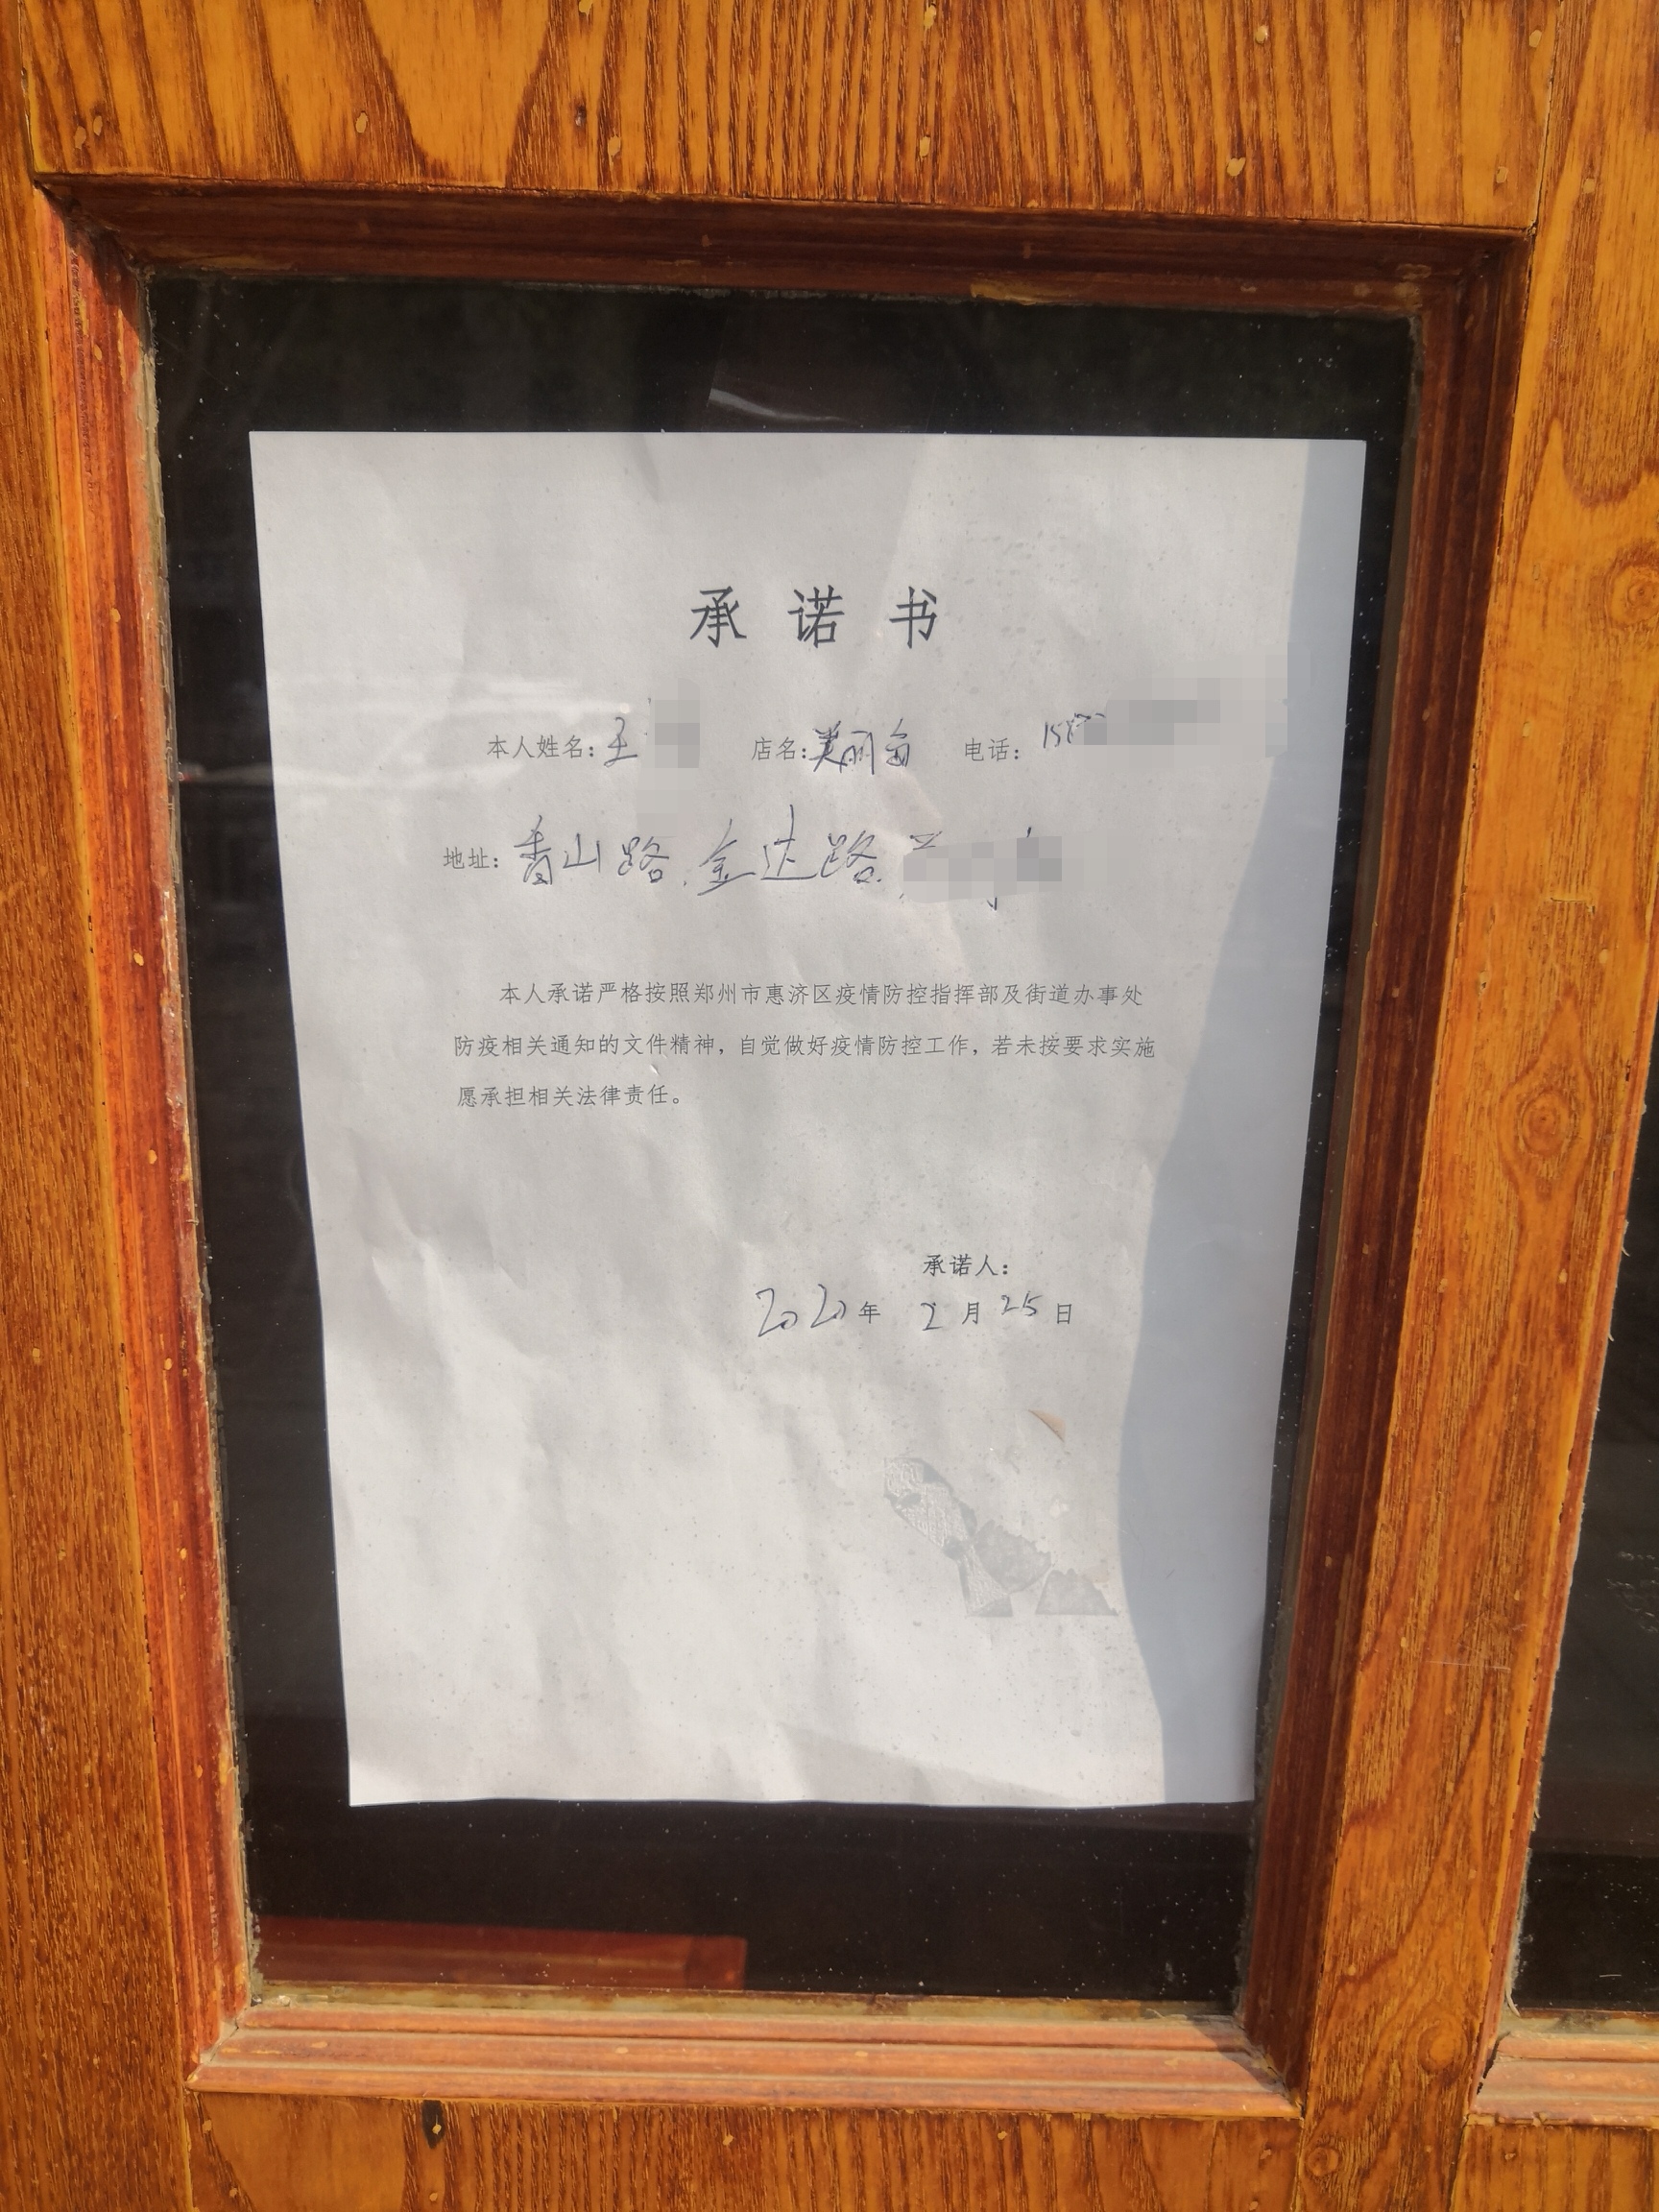 承诺书
本人姓名：王 店名：美丽岛 电话：158
地址：香山路.金达路.
本人承诺严格按照郑州市惠济区疫情防控指挥部及街道办事处
防疫相关通知的文件精神，自觉做好疫情防控工作，若未按要求实施
愿承担相关法律责任。
承诺人：
2020年 2月25日